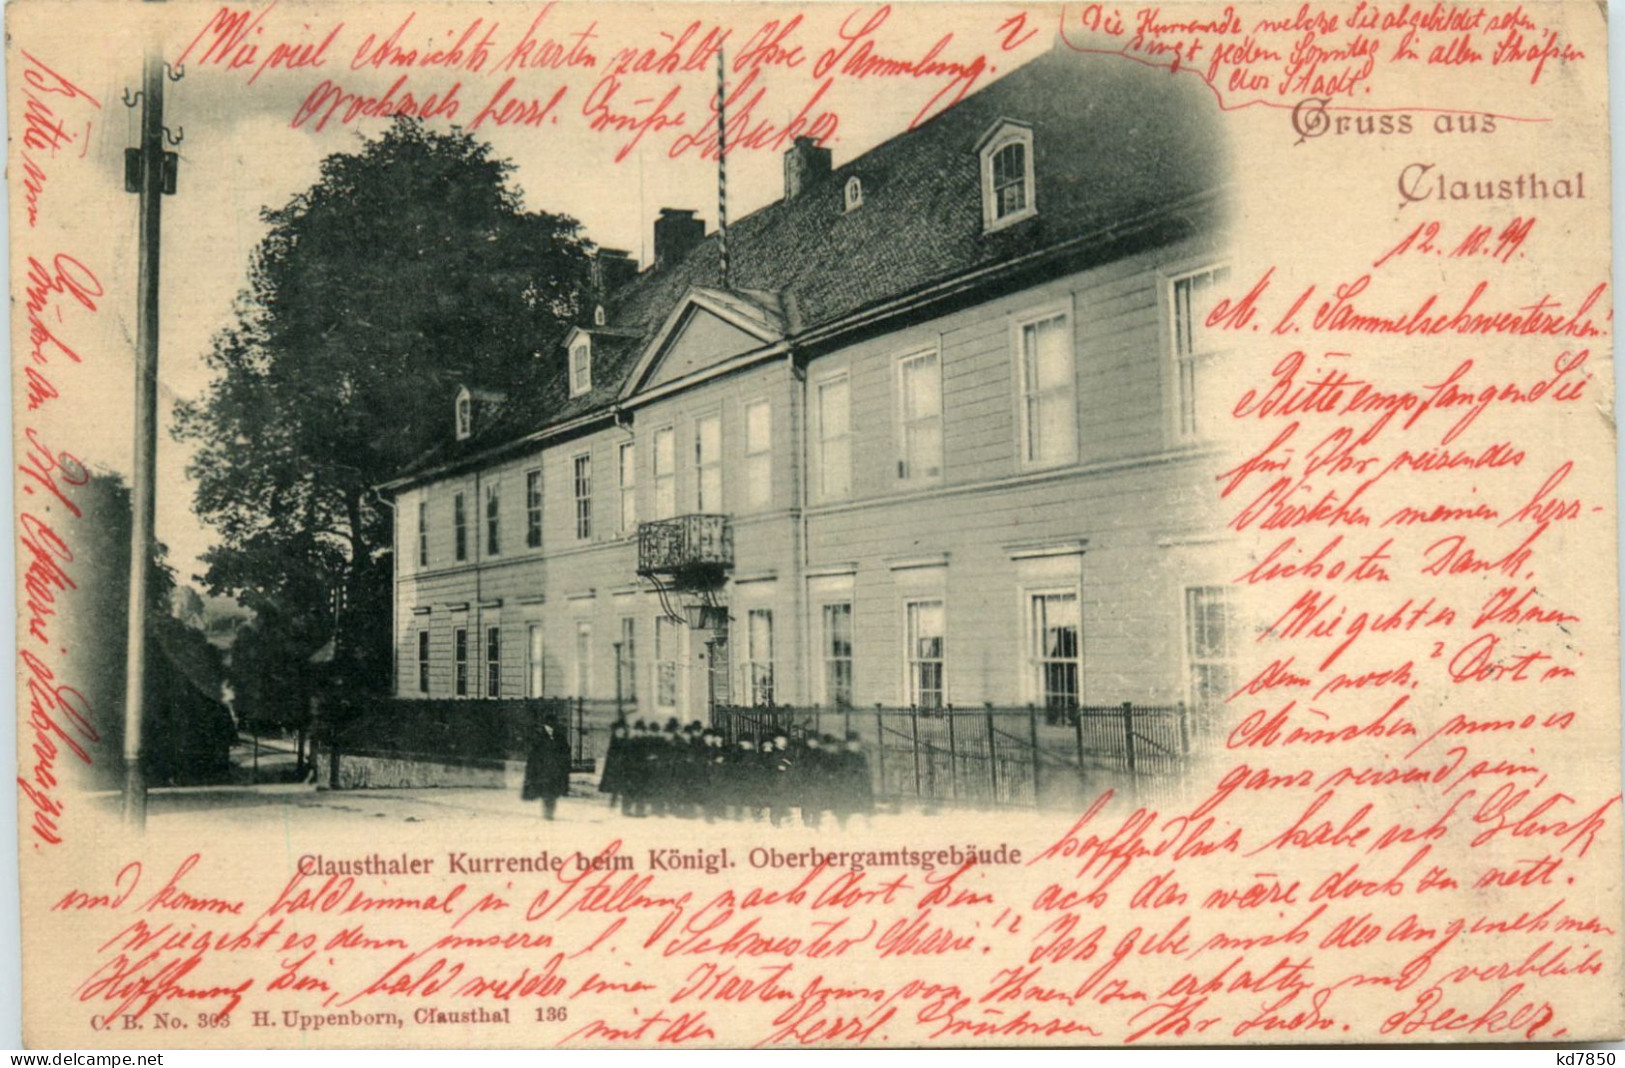 Wie viel Ansichtskarten zählt Ihre Sammlung?
Nochmals herzl. Grüße LBecker.
Die Kurrende welche Sie abgebildet sehen,
singt jeden Sonntag in allen Straßen
der Stadt.
Gruss aus
Clausthal
12.10.99.
M. l. Sammelschwesterchen!
Bitte empfangen Sie
für Ihr reizendes
Kärtchen meinen herz-
lichsten Dank.
Wie geht es Ihnen
denn noch? Dort in
München muss es
ganz reizend sein,
hoffendlich habe ich Glück
und komme bald einmal in Stellung nach dort hin, ach das wäre doch zu nett.
Wie geht es denn unserer l. Schwester Marie!? Ich gebe mich der angenehmen
Hoffnung hin, bald wieder einen Kartengruss von Ihnen zu erhalten und verbleibe
mit den herzl. Grüssen Ihr Ludw. Becker.
Bitte um Grüße an Frl. Marie Schwaiger.
Clausthaler Kurrende beim Königl. Oberbergamtsgebäude
C. B. No. 303 H. Uppenborn, Clausthal 136
kd7850